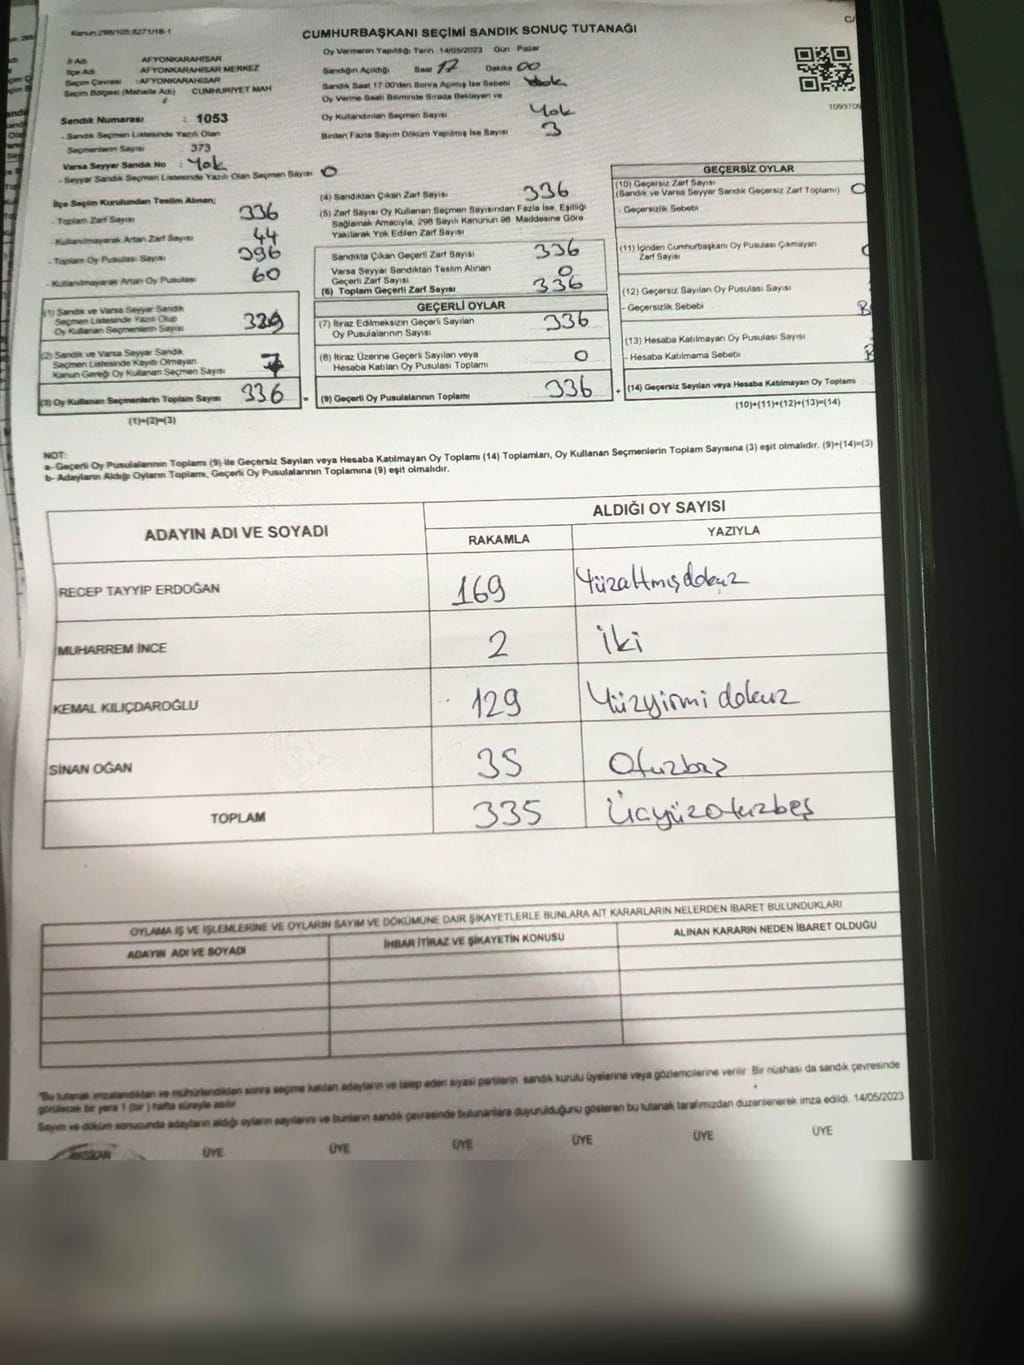 Kanun,298/105,6271/18-1
CUMHURBAŞKANI SEÇİMİ SANDIK SONUÇ TUTANAĞI
C/
İl Adı AFYONKARAHİSAR
İlçe Adı AFYONKARAHİSAR MERKEZ
Seçim Çevresi : AFYONKARAHİSAR
Seçim Bölgesi (Mahalle Adı) CUMHURİYET MAH
Sandık Numarası : 1053
- Sandık Seçmen Listesinde Yazılı Olan
Seçmenlerin Sayısı : 373
Varsa Seyyar Sandık No : Yok
- Seyyar Sandık Seçmen Listesinde Yazılı Olan Seçmen Sayısı 0
Oy Vermenin Yapıldığı Tarih 14/05/2023 Gün Pazar
Sandığın Açıldığı Saat 17 Dakika 00
Sandık Saat 17:00'den Sonra Açılmış İse Sebebi Yok
Oy Verme Saati Bitiminde Sırada Bekleyen ve
Oy Kullandırılan Seçmen Sayısı Yok
Birden Fazla Sayım Döküm Yapılmış İse Sayısı 3
1093709
İlçe Seçim Kurulundan Teslim Alınan;
- Toplam Zarf Sayısı 336
- Kullanılmayarak Artan Zarf Sayısı 44
- Toplam Oy Pusulası Sayısı 396
- Kullanılmayarak Artan Oy Pusulası 60
(1) Sandık ve Varsa Seyyar Sandık
Seçmen Listesinde Yazılı Olup
Oy Kullanan Seçmenlerin Sayısı 329
(2) Sandık ve Varsa Seyyar Sandık
Seçmen Listesinde Kayıtlı Olmayan
Kanun Gereği Oy Kullanan Seçmen Sayısı 7
(3) Oy Kullanan Seçmenlerin Toplam Sayısı 336
(1)+(2)=(3)
(4) Sandıktan Çıkan Zarf Sayısı 336
(5) Zarf Sayısı Oy Kullanan Seçmen Sayısından Fazla İse, Eşitliği
Sağlamak Amacıyla, 298 Sayılı Kanunun 98. Maddesine Göre
Yakılarak Yok Edilen Zarf Sayısı
Sandıkta Çıkan Geçerli Zarf Sayısı 336
Varsa Seyyar Sandıktan Teslim Alınan
Geçerli Zarf Sayısı 0
(6) Toplam Geçerli Zarf Sayısı 336
GEÇERLİ OYLAR
(7) İtiraz Edilmeksizin Geçerli Sayılan
Oy Pusulalarının Sayısı 336
(8) İtiraz Üzerine Geçerli Sayılan veya
Hesaba Katılan Oy Pusulası Toplamı 0
= (9) Geçerli Oy Pusulalarının Toplamı 336 +
GEÇERSİZ OYLAR
(10) Geçersiz Zarf Sayısı
(Sandık ve Varsa Seyyar Sandık Geçersiz Zarf Toplamı) 0
- Geçersizlik Sebebi
(11) İçinden Cumhurbaşkanı Oy Pusulası Çıkmayan
Zarf Sayısı
(12) Geçersiz Sayılan Oy Pusulası Sayısı
- Geçersizlik Sebebi
(13) Hesaba Katılmayan Oy Pusulası Sayısı
- Hesaba Katılmama Sebebi
(14) Geçersiz Sayılan veya Hesaba Katılmayan Oy Toplamı
(10)+(11)+(12)+(13)=(14)
NOT:
a- Geçerli Oy Pusulalarının Toplamı (9) ile Geçersiz Sayılan veya Hesaba Katılmayan Oy Toplamı (14) Toplamları, Oy Kullanan Seçmenlerin Toplam Sayısına (3) eşit olmalıdır. (9)+(14)=(3)
b- Adayların Aldığı Oyların Toplamı, Geçerli Oy Pusulalarının Toplamına (9) eşit olmalıdır.
ADAYIN ADI VE SOYADI ALDIĞI OY SAYISI
RAKAMLA YAZIYLA
RECEP TAYYİP ERDOĞAN 169 Yüzaltmışdokuz
MUHARREM İNCE 2 İki
KEMAL KILIÇDAROĞLU 129 Yüzyirmi dokuz
SİNAN OĞAN 35 Otuzbeş
TOPLAM 335 Üçyüzotuzbeş
OYLAMA İŞ VE İŞLEMLERİNE VE OYLARIN SAYIM VE DÖKÜMÜNE DAİR ŞİKAYETLERLE BUNLARA AİT KARARLARIN NELERDEN İBARET BULUNDUKLARI
ADAYIN ADI VE SOYADI İHBAR İTİRAZ VE ŞİKAYETİN KONUSU ALINAN KARARIN NEDEN İBARET OLDUĞU
"Bu tutanak imzalandıktan ve mühürlendikten sonra seçime katılan adayların ve talep eden siyasi partilerin sandık kurulu üyelerine veya gözlemcilerine verilir. Bir nüshası da sandık çevresinde
görülecek bir yere 1 (bir) hafta süreyle asılır.
Sayım ve döküm sonucunda adayların aldığı oyların sayılarını ve bunların sandık çevresinde bulunanlara duyurulduğunu gösteren bu tutanak tarafımızdan düzenlenerek imza edildi. 14/05/2023
BAŞKAN ÜYE ÜYE ÜYE ÜYE ÜYE ÜYE